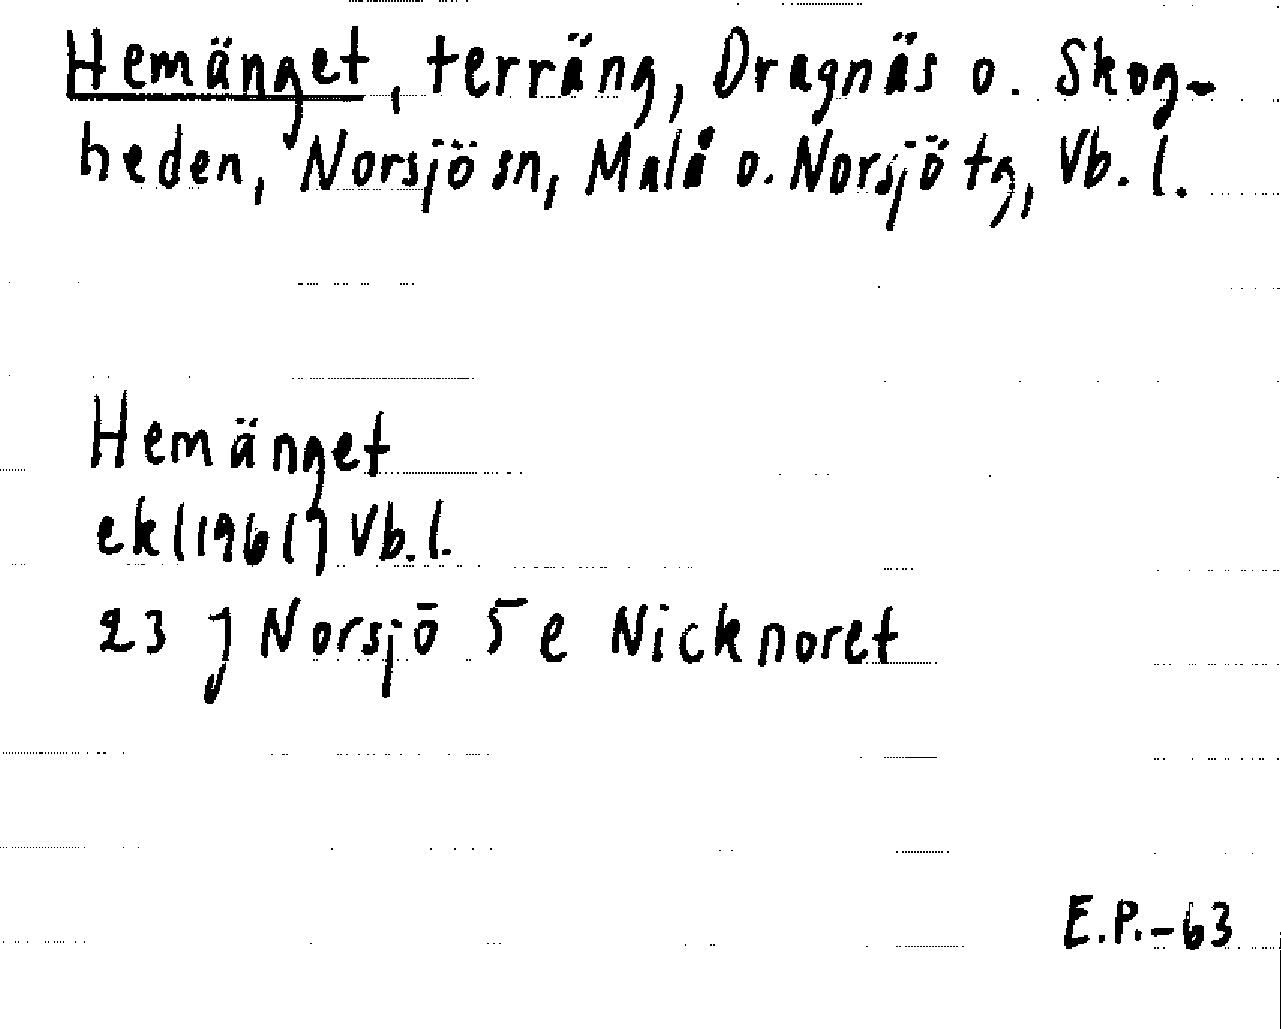 Hemänget, terräng, Dragnäs o. Skog-
heden, Norsjö sn, Malå o. Norsjö tg, Vb. l.
Hemänget
ek (1961) Vb. l.
23 J Norsjö 5 e Nicknoret
E.P.-63